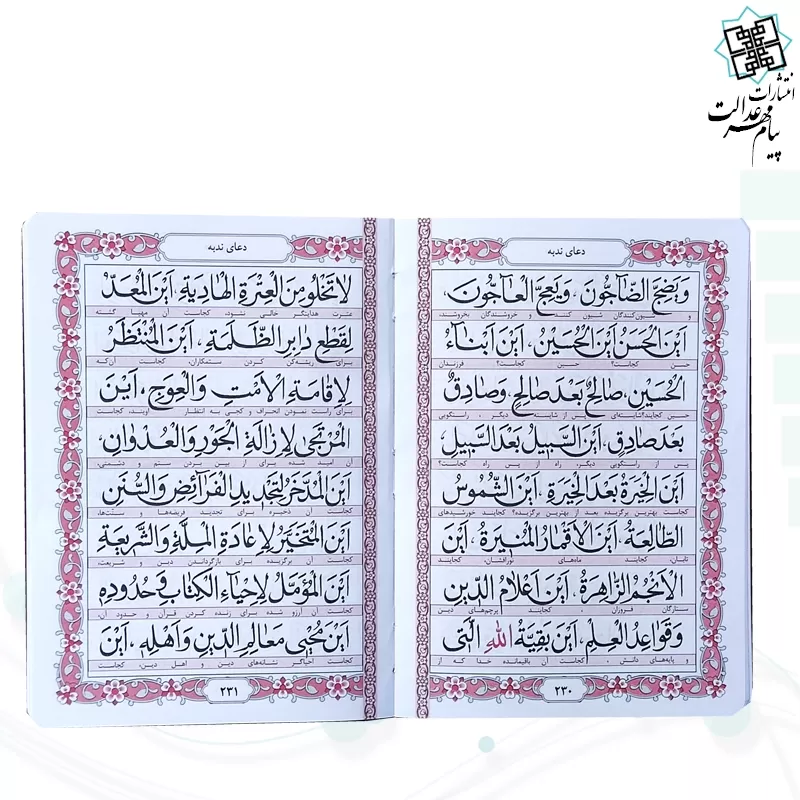 انتشارات
پیام مهر عدالت
دعای ندبه
وَيَضِجَّ الضّاجُّونَ، وَيَعِجَّ الْعاجُّونَ،
و شیون‌کنندگان شیون کنند و خروشندگان بخروشند،
اَيْنَ الْحَسَنُ اَيْنَ الْحُسَيْنُ، اَيْنَ اَبْناءُ
حسن کجاست؟ حسین کجاست؟ فرزندان
الْحُسَيْنِ، صالِحٌ بَعْدَ صالِحٍ، وَصادِقٌ
حسین کجایند؟ شایسته‌ای پس از شایسته‌ای دیگر، راستگویی
بَعْدَ صادِقٍ، اَيْنَ السَّبيلُ بَعْدَ السَّبيلِ،
پس از راستگویی دیگر، راه از پس راه کجاست؟
اَيْنَ الْخِيَرَةُ بَعْدَ الْخِيَرَةِ، اَيْنَ الشُّمُوسُ
کجاست بهترین برگزیده بعد از بهترین برگزیده؟ کجایند خورشیدهای
الطّالِعَةُ، اَيْنَ الْاَقْمارُ الْمُنيرَةُ، اَيْنَ
تابان، کجایند ماه‌های نورافشان، کجایند
الْاَنْجُمُ الزّاهِرَةُ، اَيْنَ اَعْلامُ الدّينِ
ستارگان فروزان، کجایند پرچم‌های دین
وَقَواعِدُ الْعِلْمِ، اَيْنَ بَقِيَّةُ اللهِ الَّتى
و پایه‌های دانش، کجاست آن باقیمانده خدا که از
۲۳۰
دعای ندبه
لا تَخْلُو مِنَ الْعِتْرَةِ الْهادِيَةِ، اَيْنَ الْمُعَدُّ
عترت هدایتگر خالی نشود، کجاست آن مهیا گشته
لِقَطْعِ دابِرِ الظَّلَمَةِ، اَيْنَ الْمُنْتَظَرُ
برای ریشه‌کن کردن ستمکاران، کجاست آن‌که
لِاِقامَةِ الْاَمْتِ وَالْعِوَجِ، اَيْنَ
برای راست نمودن انحراف و کجی به انتظار اویند، کجاست
الْمُرْتَجى لِاِزالَةِ الْجَوْرِ وَالْعُدْوانِ،
آن امید شده برای از بین بردن ستم و دشمنی،
اَيْنَ الْمُدَّخَرُ لِتَجْديدِ الْفَرآئِضِ وَالسُّنَنِ
کجاست آن ذخیره برای تجدید فریضه‌ها و سنّت‌ها،
اَيْنَ الْمُتَخَيَّرُ لِاِعادَةِ الْمِلَّةِ وَالشَّريعَةِ
کجاست آن برگزیده برای بازگرداندن دین و شریعت،
اَيْنَ الْمُؤَمَّلُ لِاِحْياءِ الْكِتابِ وَحُدُودِهِ
کجاست آن آرزو شده برای زنده کردن قرآن و حدود آن،
اَيْنَ مُحْيى مَعالِمِ الدّينِ وَاَهْلِهِ، اَيْنَ
کجاست احیاگر نشانه‌های دین و اهل دین، کجاست
۲۳۱